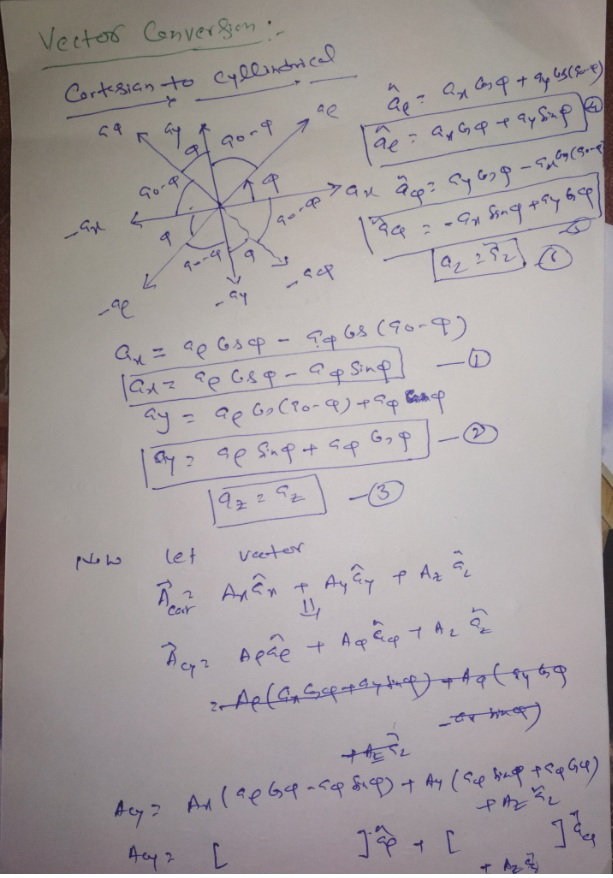 Vector Conversion:-
Cartesian to Cyllindrical
âρ = ax Cosφ + ay Cos(90-φ)
âρ = ax Cosφ + ay Sinφ (4)
aφ ay 90-φ aρ
φ
90-φ φ ax
-ax 90-φ
φ 90-φ φ
-aρ -ay -aφ
âφ = ay Cosφ - ax Cos(90-φ
âφ = -ax Sinφ + ay Cosφ (5)
az = az (6)
ax = aρ Cosφ - aφ Cos(90-φ)
ax = aρ Cosφ - aφ Sinφ - (1)
ay = aρ Cos(90-φ) + aφ Cosφ
ay = aρ Sinφ + aφ Cosφ - (2)
az = az - (3)
Now let vector
A car = Ax âx + Ay ây + Az âz
Acy = Aρ âρ + Aφ âφ + Az âz
= Aρ(ax Cosφ + ay Sinφ) + Aφ(ay Cosφ
- ax Sinφ)
+ Az âz
Acy = Ax(aρ Cosφ - aφ Sinφ) + Ay(aρ Sinφ + aφ Cosφ)
+ Az âz
Acy = [ ] âρ + [ ] âφ
+ Az âz